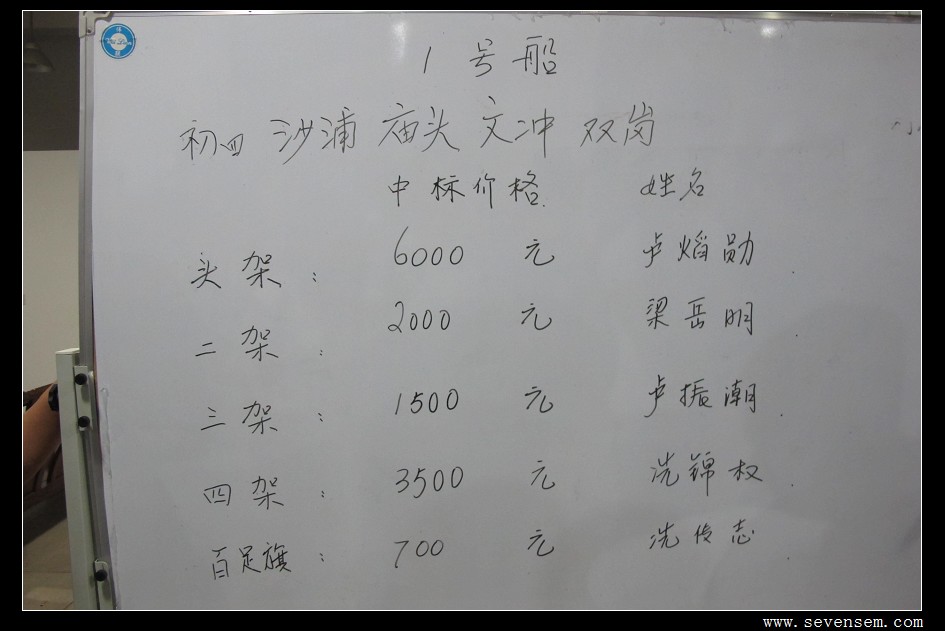 1 号船
初四 沙浦 庙头 文冲 双岗
中标价格. 姓名
头架: 6000 元 卢焰勋.
二架: 2000 元 梁岳明.
三架: 1500 元 卢振潮.
四架: 3500 元 冼锦权.
百足旗: 700 元 冼俊志.
www.sevensem.com